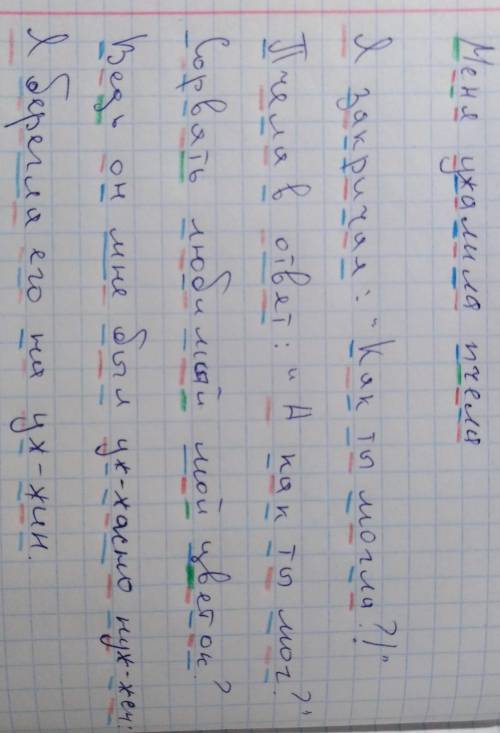 Меня ужалила пчела
Я закричал: "Как ты могла?!"
Пчела в ответ: "А как ты мог?"
Сорвать любимый мой цветок?
Ведь он мне был уж-жасно нуж-жен:
Я берегла его на уж-жин.